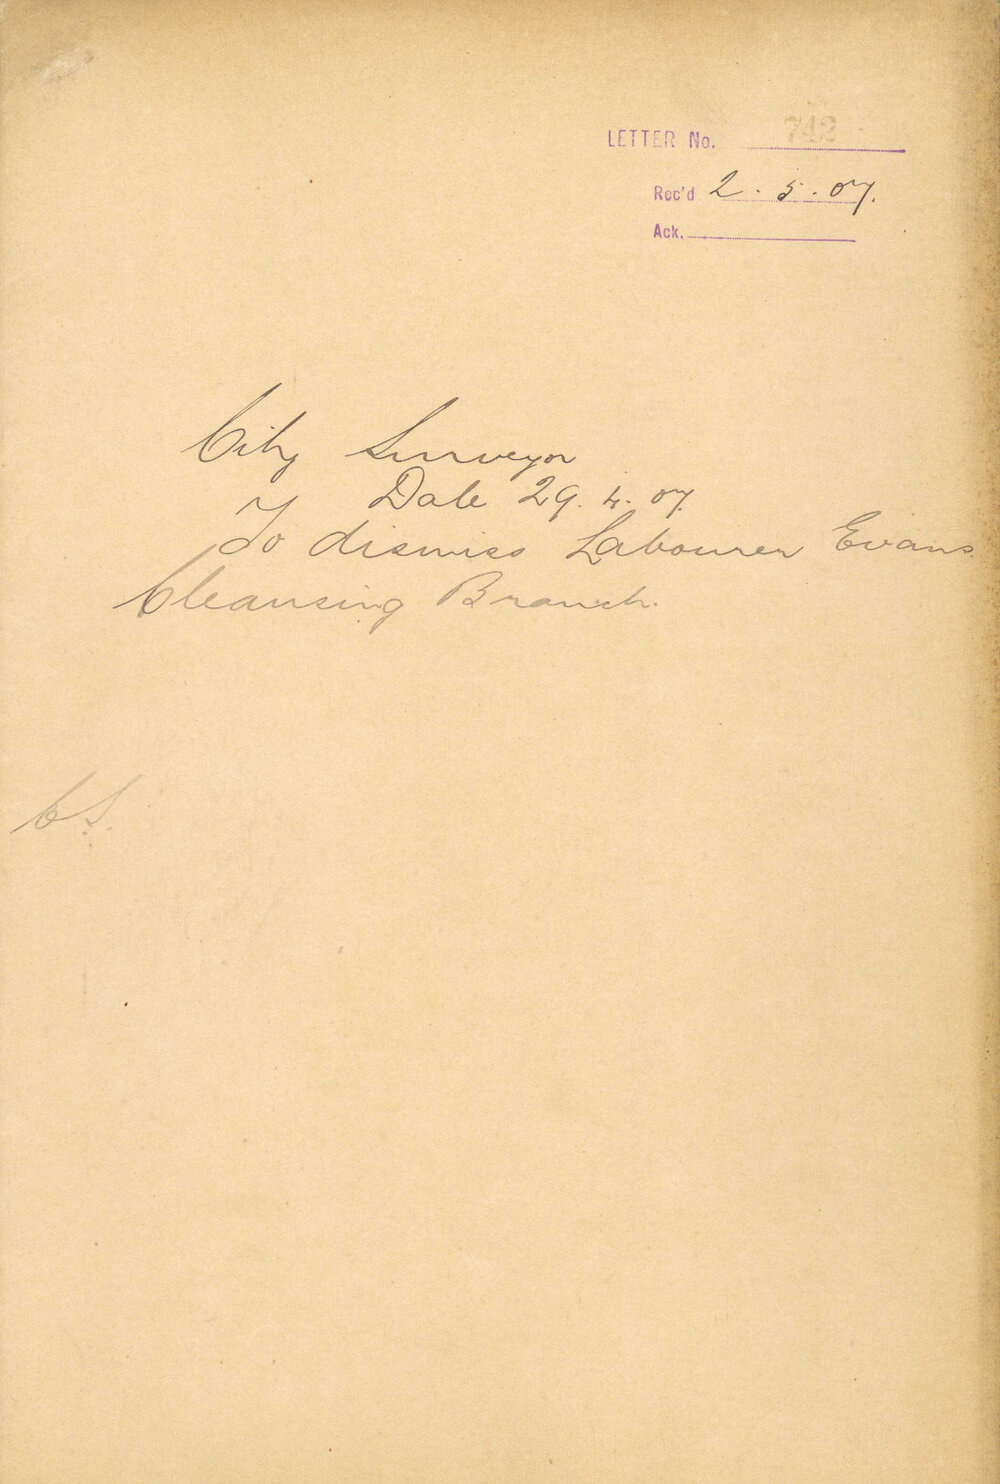 LETTER No. 742
Rec'd 2.5.07.
Ack.
City Surveyor
Date 29.4.07.
To dismiss Labourer Evans.
Cleansing Branch.
C.S.